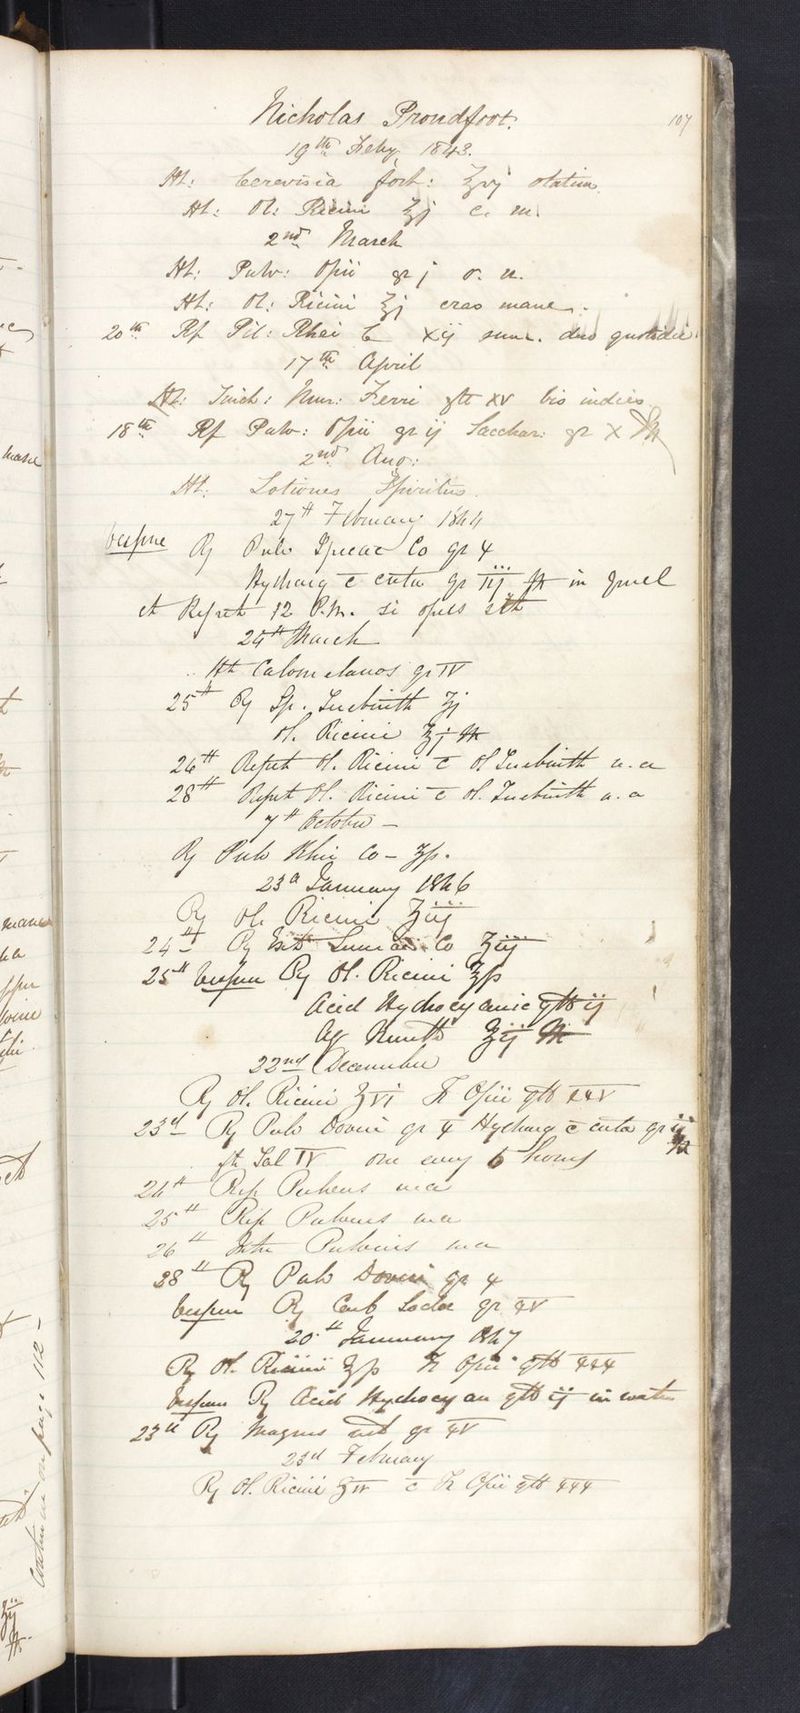 107
Nicholas Proudfoot.
19th Feby 1843.
Ht: Cerevisia fort: ℥vj statim.
Ht: Ol: Ricini ℥j c. m.
2nd March
Ht: Pulv: Opii gr j o. n.
Ht: Ol: Ricini ℥j cras mane.
20th Rf Pil: Rhei C xij sum. duo quotidie
17th April
Ht: Tinct: Mur: Ferri gtt XV bis indies
18th Rf Pulv: Opii gr ij Sacchar: gr X ft
2nd Aug:
Ht: Lotiones Spiritus.
27th February 1844
Vespere Rx Pulv Ipecac Co gr X
Hydrarg c creta gr iij ft in gruel
et Repet 12 P.M. si opus sit
24th March
Ht Calomelanos gr IV
25th Rx Sp. Terebinth ʒj
Ol. Ricini ℥j ft
26th Repet Ol. Ricini c Ol Terebinth u. a
28th Repet Ol. Ricini c Ol. Terebinth u. a
7th October –
Rx Pulv Rhei Co – ʒſs.
23d January 1846
Rx Ol. Ricini ʒiij
24th Rx Co ʒiij
25th Vespere Rx Ol. Ricini ℥ſs
Acid Hydrocyanic gtt ij
Aq Menth ℥ij ft
22nd December
Rx Ol. Ricini ʒvi Tr Opii gtt XXV
23d Rx Pulv Doveri gr X Hydrarg c creta gr ij
ft Tal IV one every 6 hours ft
24th Rep Pulveres u a
25th Rep Pulveres u a
26th Pulveris u a
28th Rx Pulv Doveri gr X
Vespere Rx Carb Sodae gr XV
20th January 1847
Rx Ol. Ricini ℥ſs Tr Opii gtt XXX
Vespere Rx Acid Hydrocyan gtt ij in water
23d Rx Magnes ust gr XV
23d February
Rx Ol. Ricini ʒIV c Tr Opii gtt XXX
Continued on page 112 –